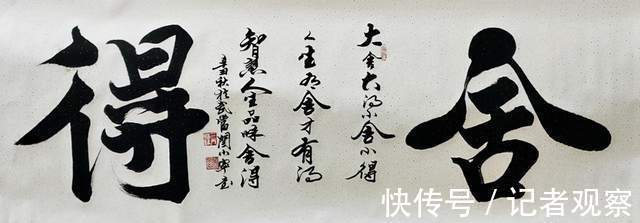 舍
大舍大得小舍小得
人生有舍才有得
智慧人生品味舍得
秋於武當
得
快传号/记者观察